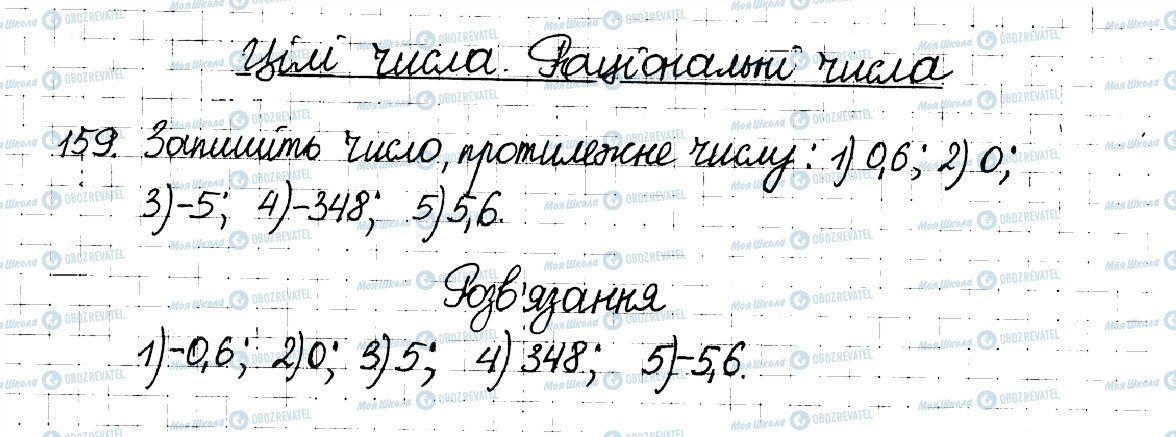 Цілі числа. Раціональні числа
159. Запишіть число, протилежне числу: 1) 0,6; 2) 0;
3) -5; 4) -348; 5) 5,6.
Розв'язання
1) -0,6; 2) 0; 3) 5; 4) 348; 5) -5,6.